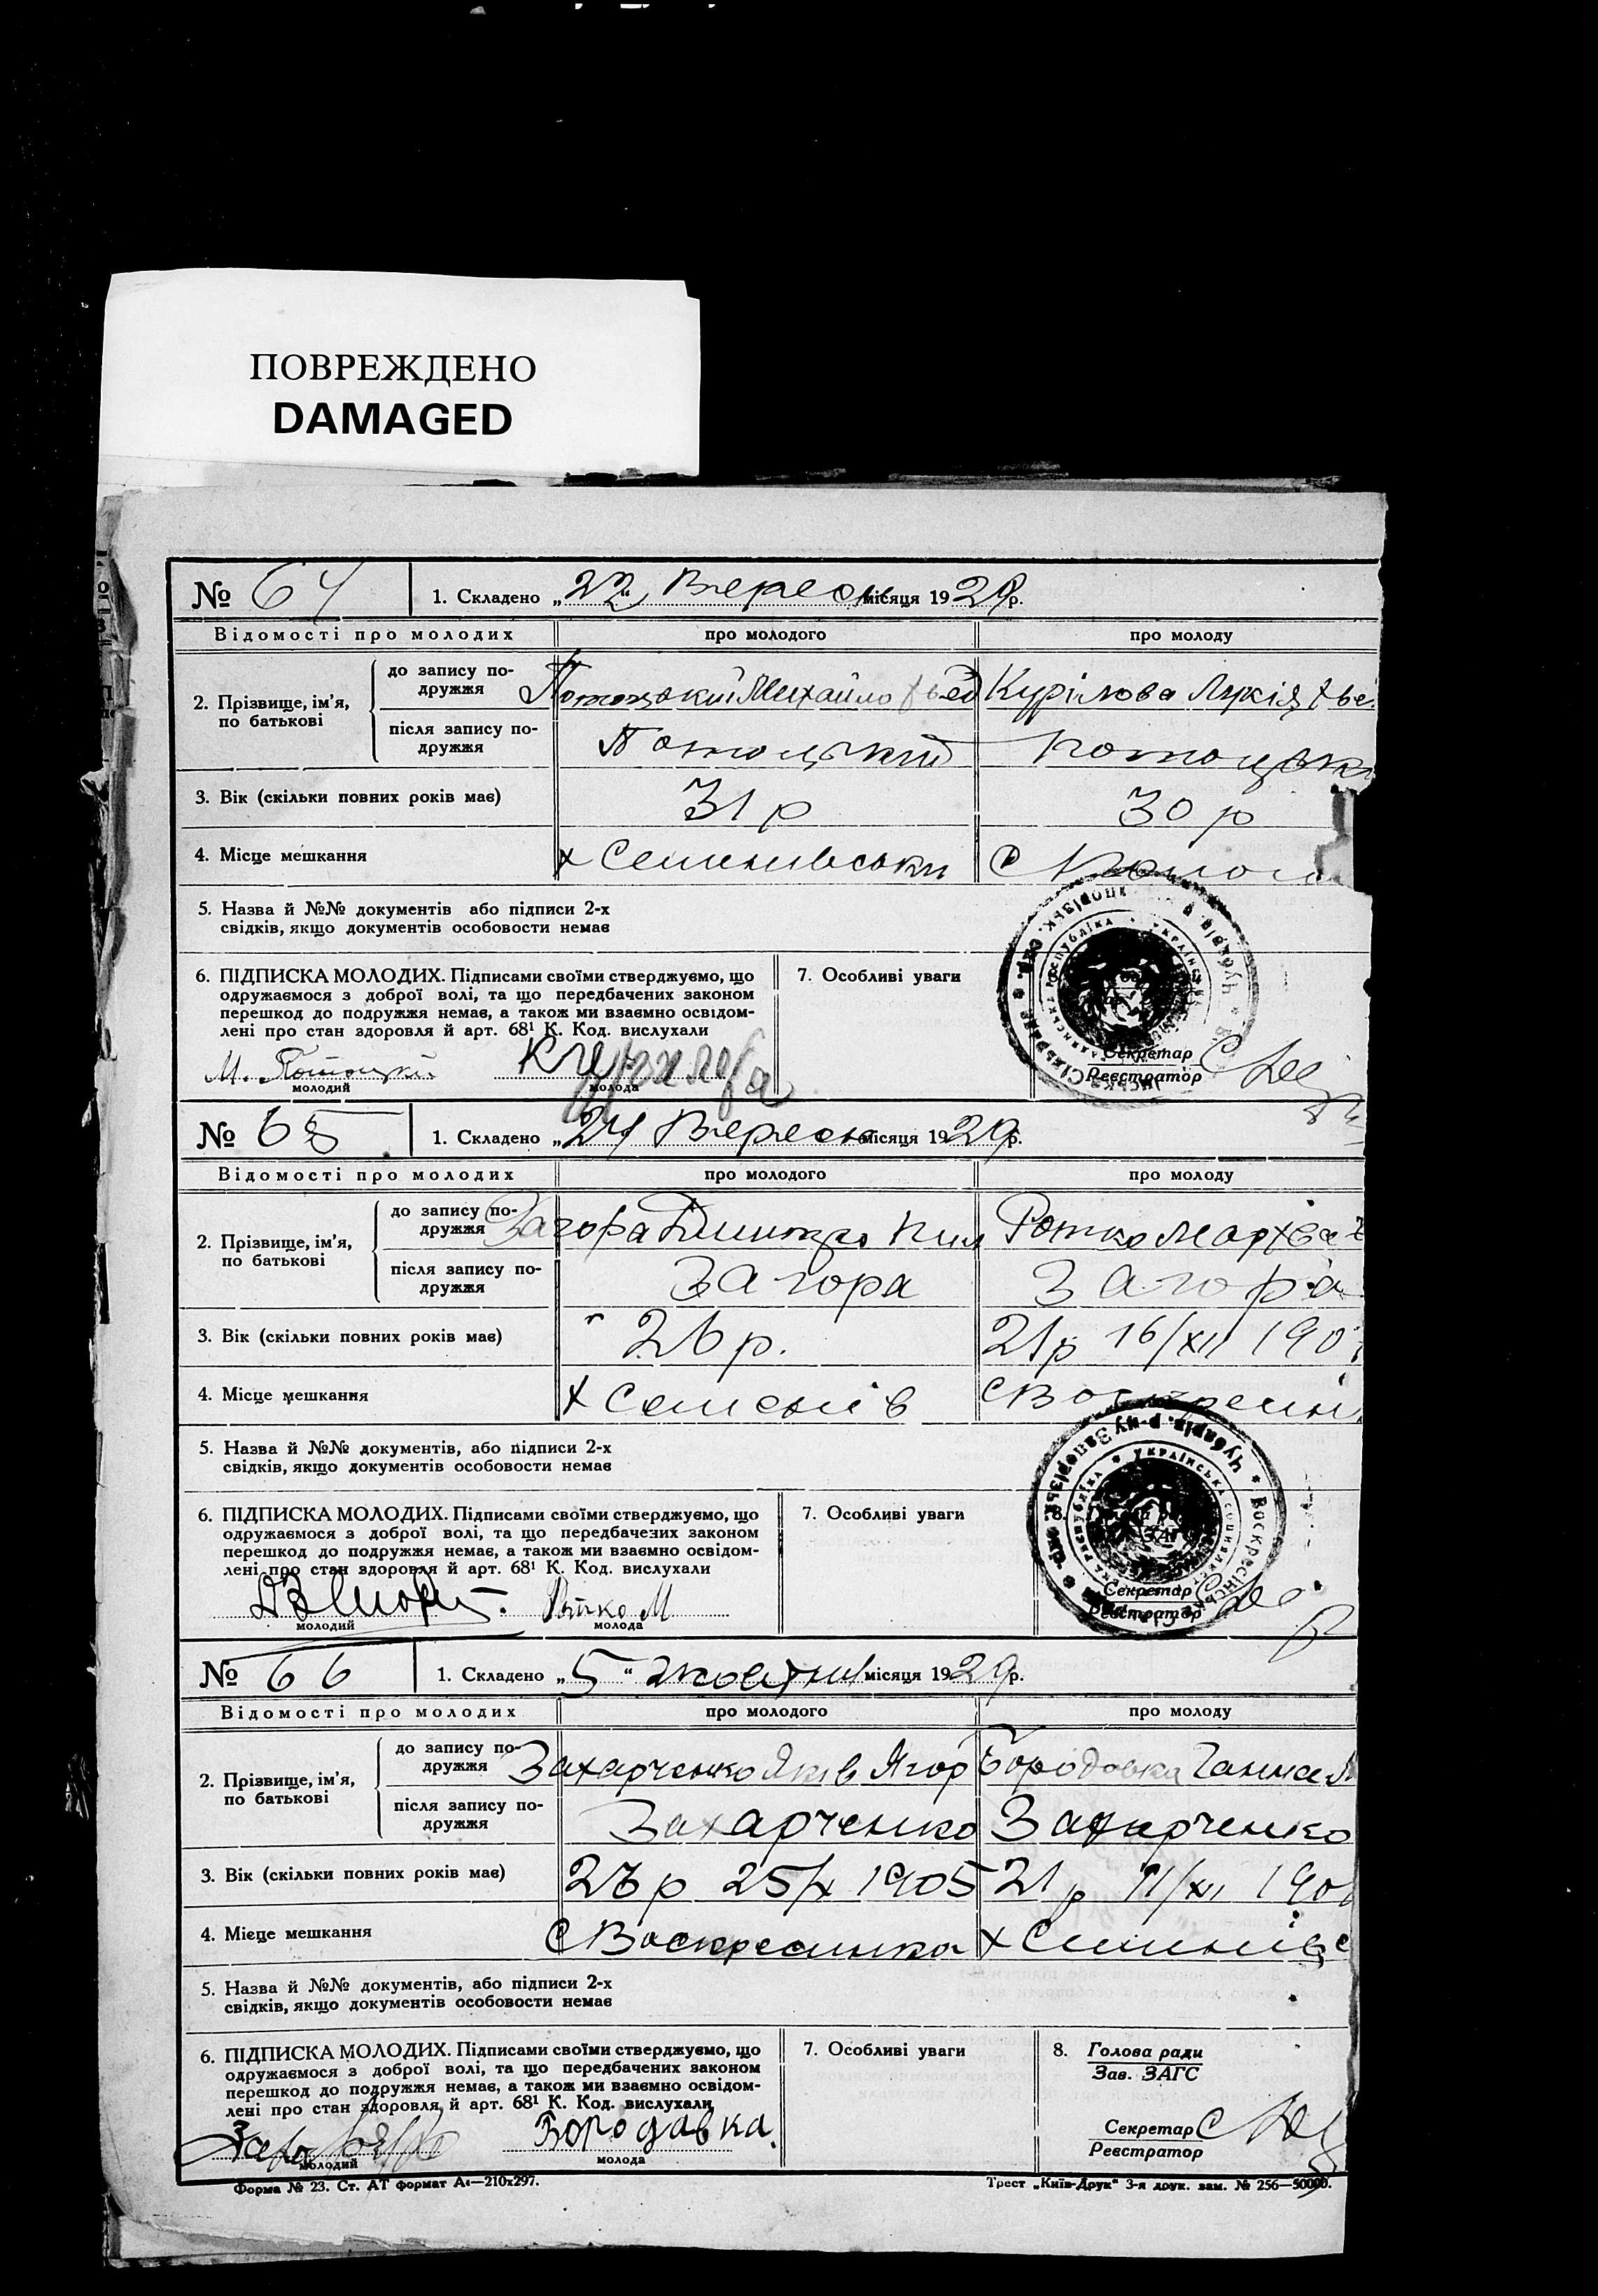 ПОВРЕЖДЕНО
DAMAGED
№ 64 1. Складено „22“ Вересня місяця 1929 р.
Відомості про молодих про молодого про молоду
2. Прізвище, ім'я, по батькові
до запису подружжя Потоцький Михайло Курілова Лукія
після запису подружжя Потоцький Потоцьк
3. Вік (скільки повних років має) 31 р 30 р
4. Місце мешкання х Семенівськи С
5. Назва й №№ документів або підписи 2-х
свідків, якщо документів особовости немає
6. ПІДПИСКА МОЛОДИХ. Підписами своїми стверджуємо, що
одружаємося з доброї волі, та що передбачених законом
перешкод до подружжя немає, а також ми взаємно освідом-
лені про стан здоровля й арт. 68¹ К. Код. вислухали
7. Особливі уваги
Секретар
Реєстратор
М. Потоцкий Курилова
молодий молода
№ 65 1. Складено „24 Вересня місяця 1929 р.
Відомості про молодих про молодого про молоду
2. Прізвище, ім'я, по батькові
до запису подружжя Загора Дмитро Пил Ротко Марх
після запису подружжя Загора Загора
3. Вік (скільки повних років має) 26 р. 21 р 16/XII 190
4. Місце мешкання х Семенів с Воскресін
5. Назва й №№ документів, або підписи 2-х
свідків, якщо документів особовости немає
6. ПІДПИСКА МОЛОДИХ. Підписами своїми стверджуємо, що
одружаємося з доброї волі, та що передбачених законом
перешкод до подружжя немає, а також ми взаємно освідом-
лені про стан здоровля й арт. 68¹ К. Код. вислухали
7. Особливі уваги
8.
Секретар
Реєстратор
Ротко М
молодий молода
№ 66 1. Складено „5“ жовтня місяця 1929 р.
Відомості про молодих про молодого про молоду
2. Прізвище, ім'я, по батькові
до запису подружжя Захарченко Яків Ягор Бородовка Ганна
після запису подружжя Захарченко Захарченко
3. Вік (скільки повних років має) 23 р 25/X 1905 21 р 11/XI 190
4. Місце мешкання С Воскресинка х Семенівс
5. Назва й №№ документів, або підписи 2-х
свідків, якщо документів особовости немає
6. ПІДПИСКА МОЛОДИХ. Підписами своїми стверджуємо, що
одружаємося з доброї волі, та що передбачених законом
перешкод до подружжя немає, а також ми взаємно освідом-
лені про стан здоровля й арт. 68¹ К. Код. вислухали
7. Особливі уваги
8. Голова ради
Зав. ЗАГС
Секретар
Реєстратор
Бородавка
молодий молода
Форма № 23. Ст. АТ формат А₄—210х297. Трест „Київ-Друк“ 3-я друк. зам. № 256—50000.